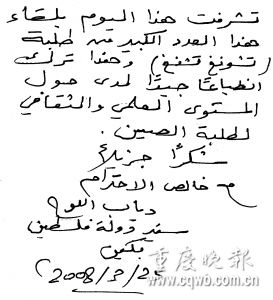 تشرفت هذا اليوم بلقاء
هذا العدد الكبير من طلبة
(تشونغ تشنغ) وهذا ترك
انطباعاً جيداً لدي حول
المستوى العلمي والثقافي
لطلبة الصين.
شكراً جزيلاً
مع خالص الاحترام
دياب اللوح
سفير دولة فلسطين
بكين
2008/3/25
重庆晚报
www.cqwb.com.cn